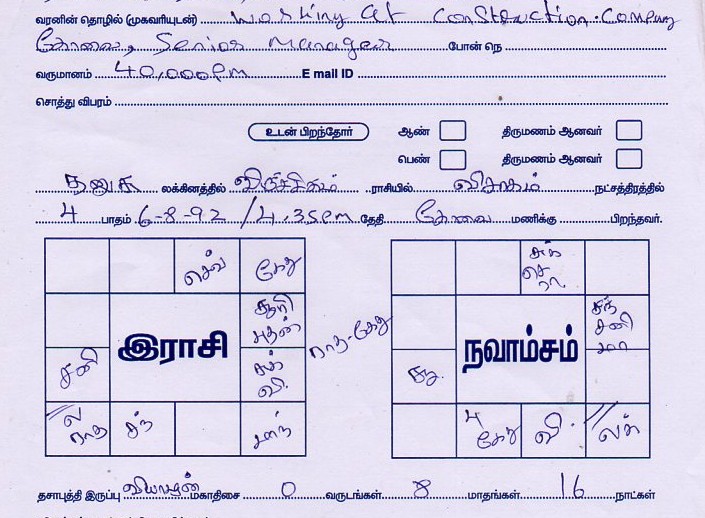 வரனின் தொழில் (முகவரியுடன்) Working at Construction. Company
கோவை, Senior Manager போன் நெ
வருமானம் 40,000 Pm E mail ID
சொத்து விபரம்
உடன் பிறந்தோர் ஆண் திருமணம் ஆனவர்
பெண் திருமணம் ஆனவர்
தனுசு லக்கினத்தில் விருச்சிகம் ராசியில் விசாகம் நட்சத்திரத்தில்
4 பாதம் 6-8-92 / 4.35pm தேதி கோவை மணிக்கு பிறந்தவர்.
செவ் கேது
சனி இராசி சூரி புதன்
சுக் வி.
ல ராகு சந்
ராகு-கேது
சுக் செ ரா
நவாம்சம் சந் சனி
4 கேது வி லக்
தசாபுத்தி இருப்பு வியாழன் மகாதிசை 0 வருடங்கள் 8 மாதங்கள் 16 நாட்கள்